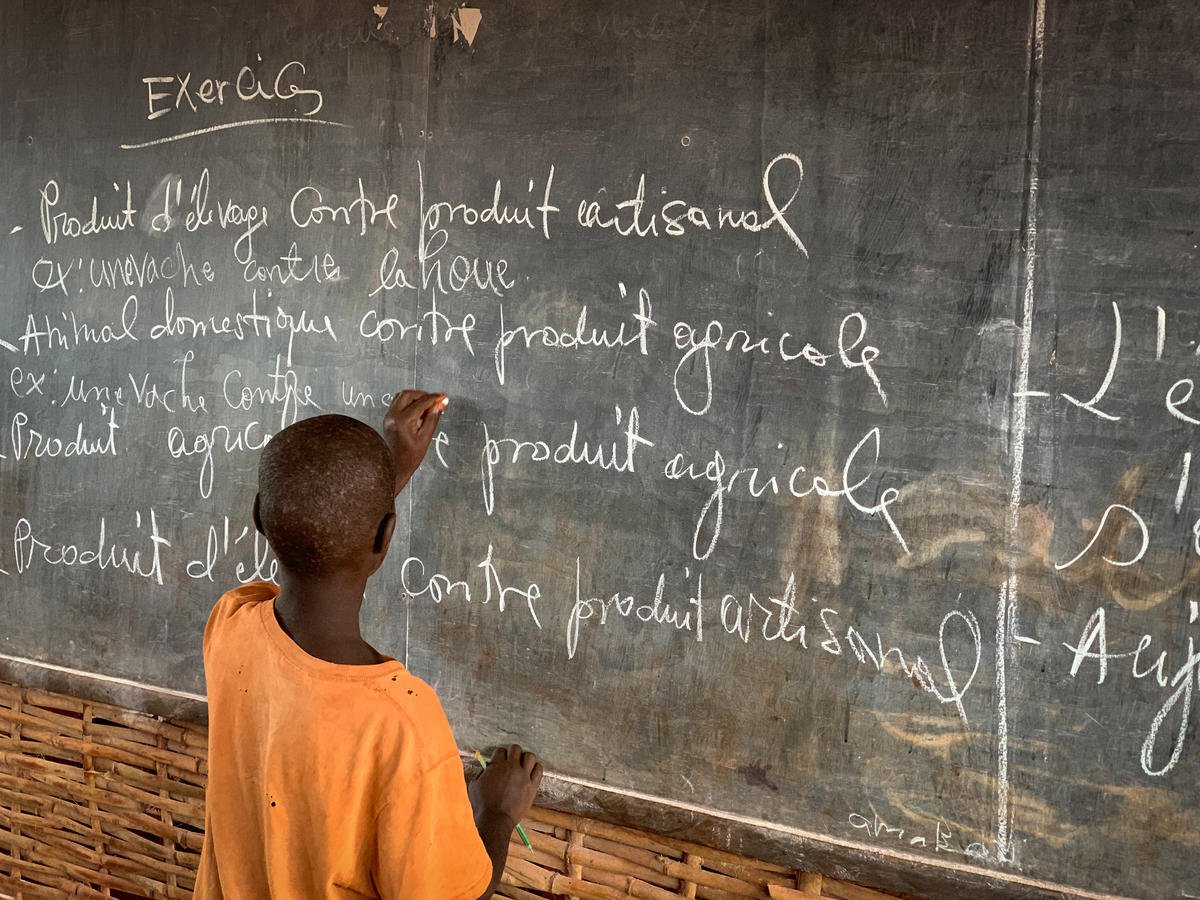 Exercice
- Produit d'élevage contre produit artisanal
ex: une vache contre la houe.
- Animal domestique contre produit agricole
ex: une vache contre une
- Produit agric e produit agricole
- Produit d'éle contre produit artisanal
- L'